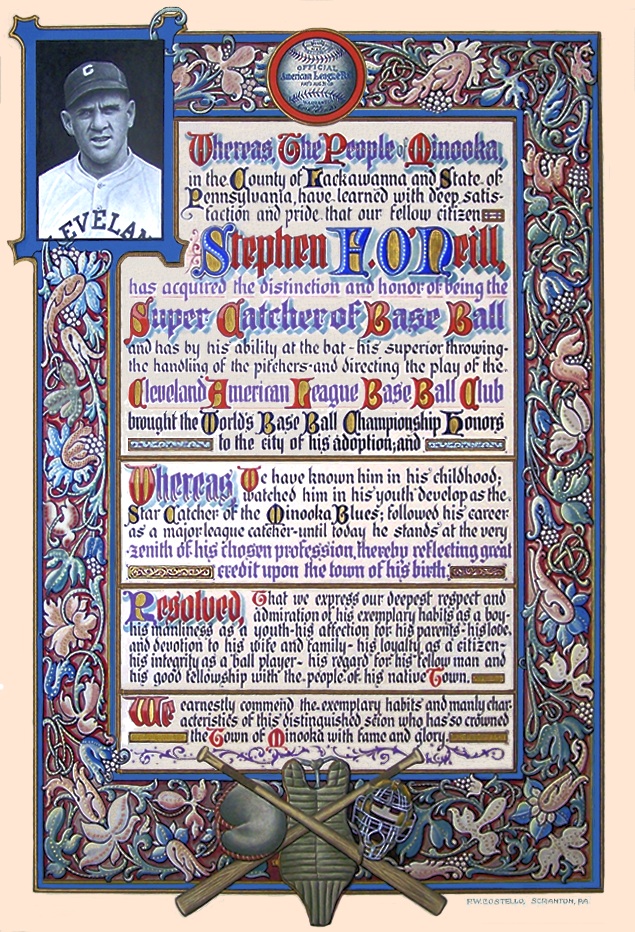 C
CLEVELAN
OFFICIAL
American League Ball
WARRANTED
Whereas, The People of Minooka,
in the County of Lackawanna and State of
Pennsylvania, have learned with deep satis-
faction and pride that our fellow citizen
Stephen F. O'Neill,
has acquired the distinction and honor of being the
Super Catcher of Base Ball
and has by his ability at the bat - his superior throwing-
the handling of the pitchers - and directing the play of the
Cleveland American League Base Ball Club
brought the World's Base Ball Championship Honors
to the city of his adoption; and
Whereas, We have known him in his childhood;
watched him in his youth develop as the
Star Catcher of the Minooka Blues; followed his career
as a major league catcher - until today he stands at the very
zenith of his chosen profession, thereby reflecting great
credit upon the town of his birth.
Resolved, That we express our deepest respect and
admiration of his exemplary habits as a boy-
his manliness as a youth - his affection for his parents - his love
and devotion to his wife and family - his loyalty as a citizen -
his integrity as a ball player - his regard for his fellow man and
his good fellowship with the people of his native Town.
We earnestly commend the exemplary habits and manly char-
acteristics of this distinguished scion who has so crowned
the Town of Minooka with fame and glory.
P.W. COSTELLO, SCRANTON, PA.